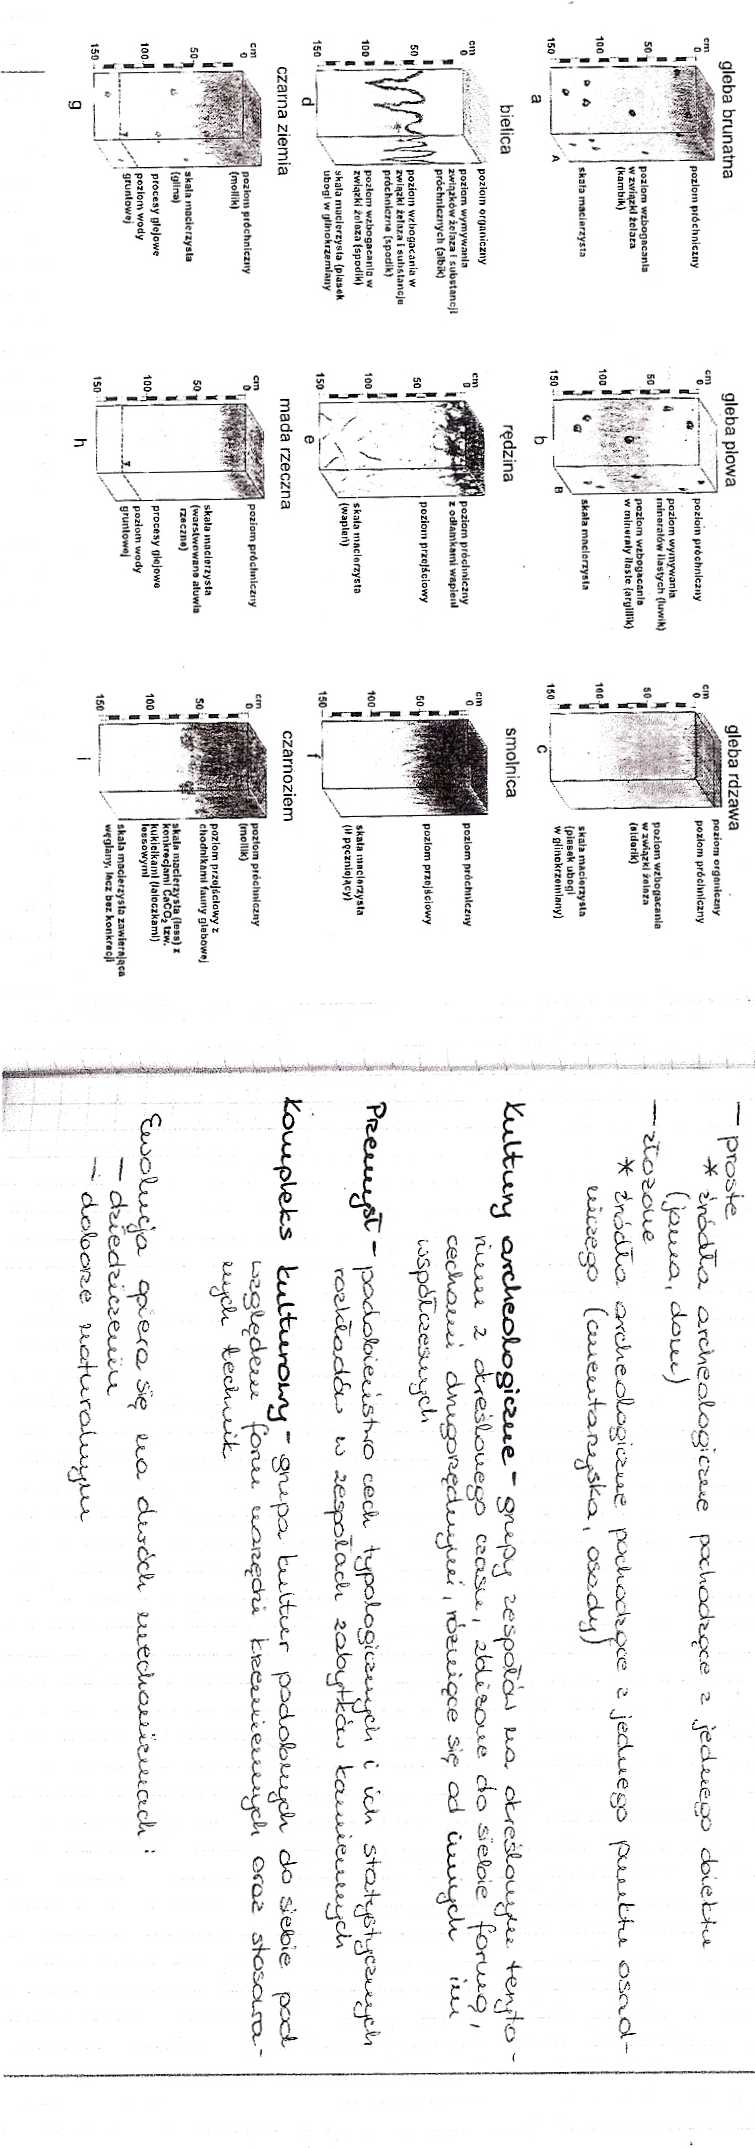 gleba brunatna
cm
0
50
100
150
poziom próchniczny
poziom wzbogacania
w związki żelaza
(kambik)
skała macierzysta
A
a
gleba płowa
cm
0
50
100
150
poziom próchniczny
poziom wymywania
minerałów ilastych (luwik)
poziom wzbogacania
w minerały ilaste (argillik)
skała macierzysta
B
b
gleba rdzawa
cm
0
50
100
150
poziom organiczny
poziom próchniczny
poziom wzbogacania
w związki żelaza
(siderik)
skała macierzysta
(piasek ubogi
w glinokrzemiany)
c
bielica
cm
0
50
100
150
poziom organiczny
poziom wymywania
związków żelaza i substancji
próchnicznych (albik)
poziom wzbogacania w
związki żelaza i substancje
próchniczne (spodik)
poziom wzbogacania w
związki żelaza (spodik)
skała macierzysta (piasek
ubogi w glinokrzemiany
d
rędzina
cm
0
50
100
150
poziom próchniczny
z odłamkami wapieni
poziom przejściowy
skała macierzysta
(wapień)
e
smolnica
cm
0
50
100
150
poziom próchniczny
poziom przejściowy
skała macierzysta
(ił pęczniejący)
f
czarna ziemia
cm
0
50
100
150
poziom próchniczny
(mollik)
skała macierzysta
(glina)
procesy glejowe
poziom wody
gruntowej
g
mada rzeczna
cm
0
50
100
150
poziom próchniczny
skała macierzysta
(warstwowane aluwia
rzeczne)
procesy glejowe
poziom wody
gruntowej
h
czarnoziem
cm
0
50
100
150
poziom próchniczny
(mollik)
poziom przejściowy z
chodnikami fauny glebowej
skała macierzysta (less) z
konkrecjami CaCO₃ tzw.
kukiełkami (laleczkami)
lessowymi
skała macierzysta zawierająca
węglany, lecz bez konkrecji
i
– proste
* źródła archeologiczne pochodzące z jednego obiektu
(jama, dom)
– złożone
* źródła archeologiczne pochodzące z jednego punktu osad-
niczego (cmentarzyska, osady)
Kultury archeologiczne – grupy zespołów na określonym teryto-
rium z określonego czasu, zbliżone do siebie formą,
cechami drugorzędnymi, różniące się od innych im
współczesnych
Przemysł – podobieństwo cech typologicznych i ich statystycznych
rozkładów w zespołach zabytków kamiennych
Kompleks kulturowy – grupa kultur podobnych do siebie pod
względem form narzędzi krzemiennych oraz stosowa-
nych technik
Ewolucja opiera się na dwóch mechanizmach:
– dziedziczeniu
– doborze naturalnym